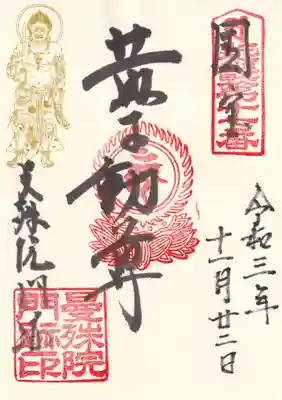 国宝
令和三年
十一月廿二日
黄不動尊
曼殊院門跡
曼殊院
門跡印